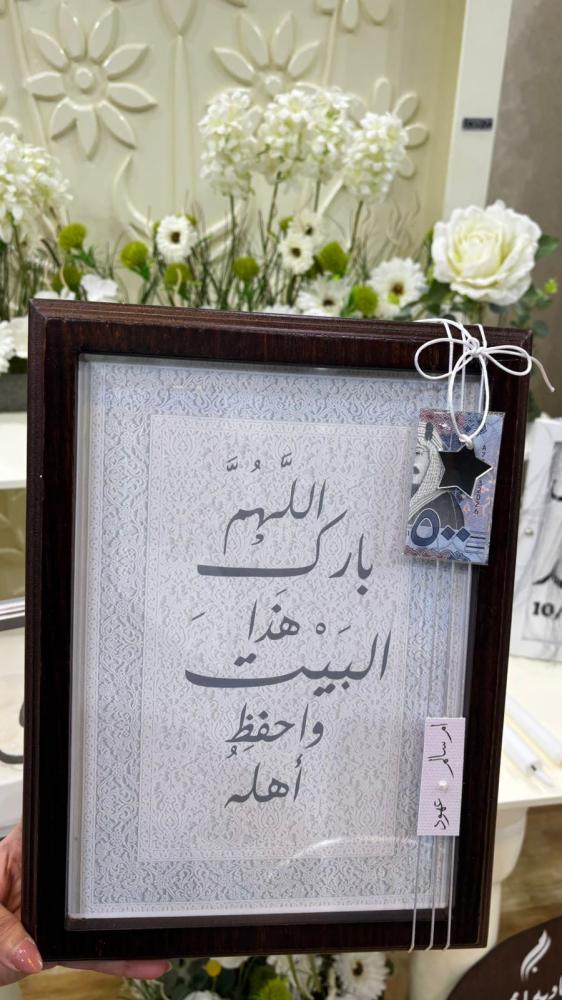 اللَّهُمَّ
بارك
هَذا
البَيْتَ
واحفظِ
أهلهُ
٥٠٠
ام سالم
عهود
10/